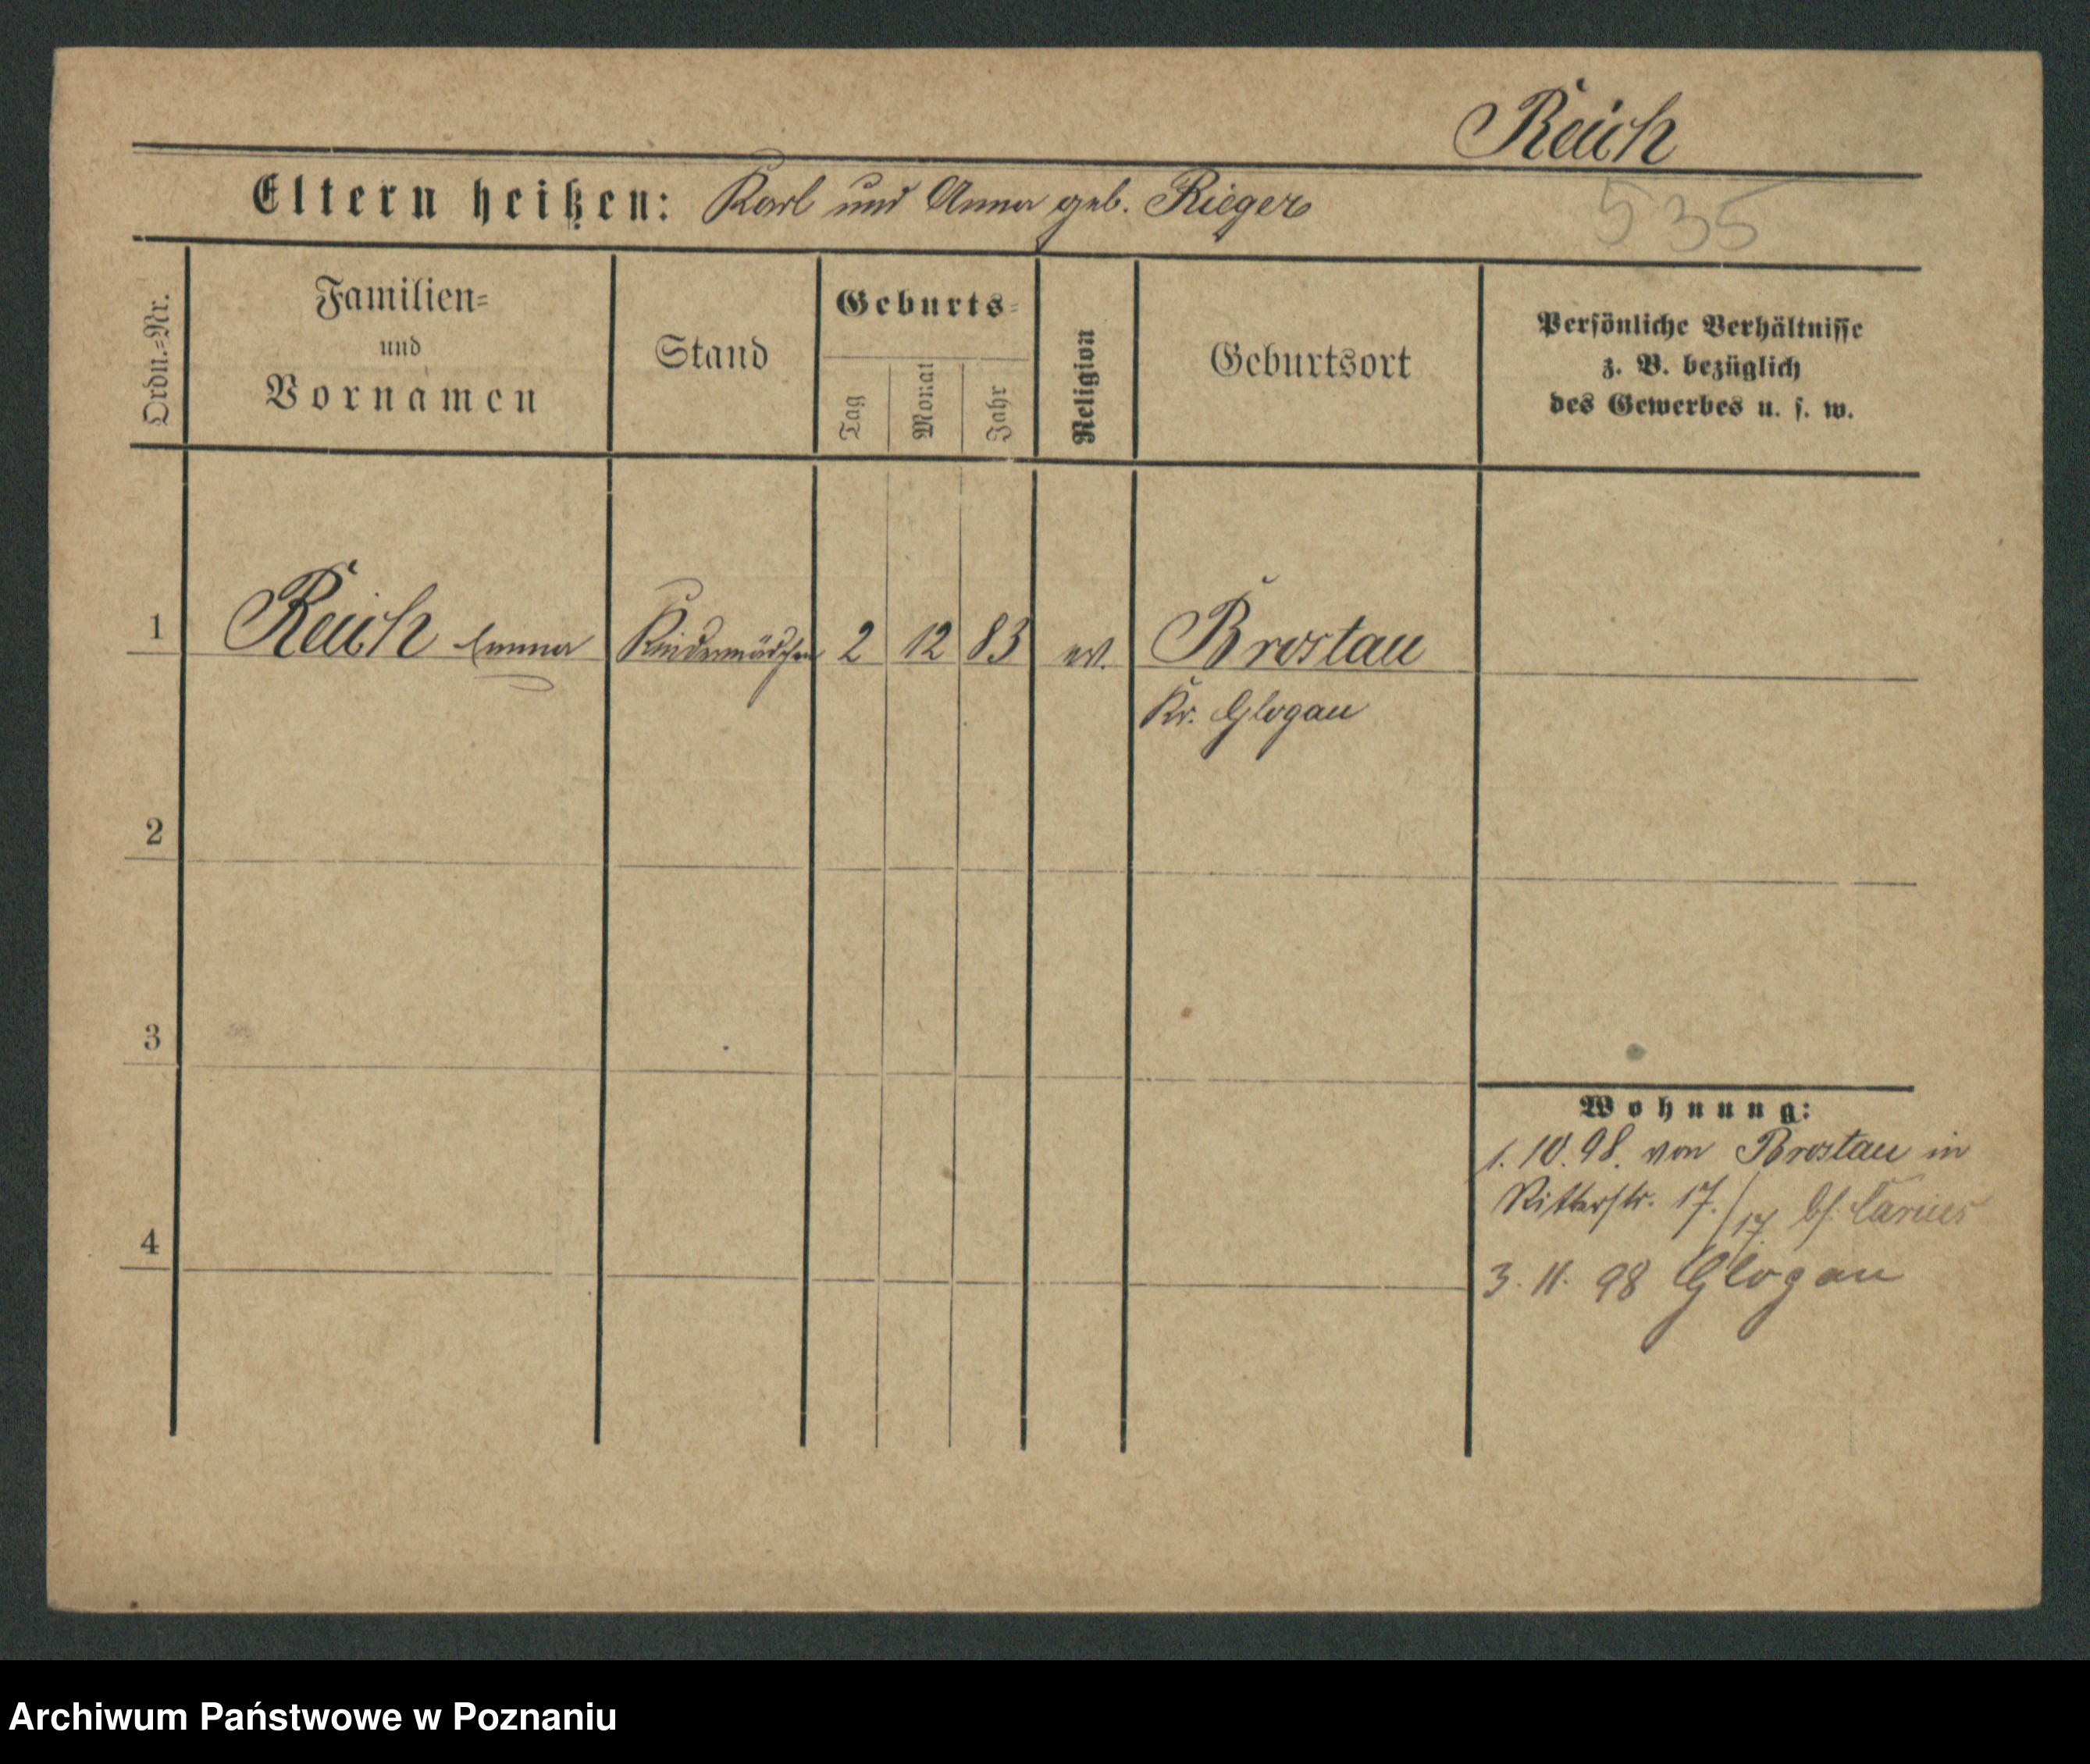 Reich
Eltern heißen: Karl und Anna geb. Rieger
535
Ordn.=Nr.
Familien=
und
Vornamen
Stand
Geburts=
Tag
Monat
Jahr
Religion
Geburtsort
Persönliche Verhältnisse
z. B. bezüglich
des Gewerbes u. s. w.
1 Reich Emma Kindermädchen 2 12 83 ev. Brostau
Kr. Glogau
2
3
4
Wohnung:
1. 10. 98. von Brostau in
Ritterstr. 17./17 bf. Carius
3. 11. 98 Glogau
Archiwum Państwowe w Poznaniu